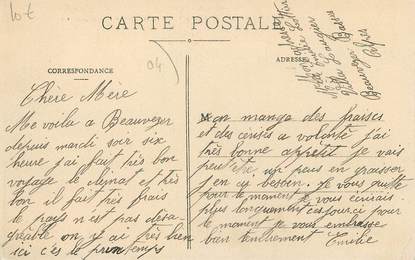 10€
CARTE POSTALE
04
CORRESPONDANCE
ADRESSE
Chère Mère
Me voila a Beauvezer
depuis mardi soir six
heure j'ai fait très bon
voyage le climat est très
bon il fait très frais
le pays n'est pas désa-
gréable on y ai très bien
ici c'es le printemps
on mange des fraises
et des cerises a volonté j'ai
très bonne appétit je vais
peut être un peus en graisser
j'en ey besoin. Je vous quitte
pour le moment je vous écrirais
plus longuement ces jour ci pour
le moment je vous embrasse
bien tendrement Emilie
Basses
Beauvezer Alpes